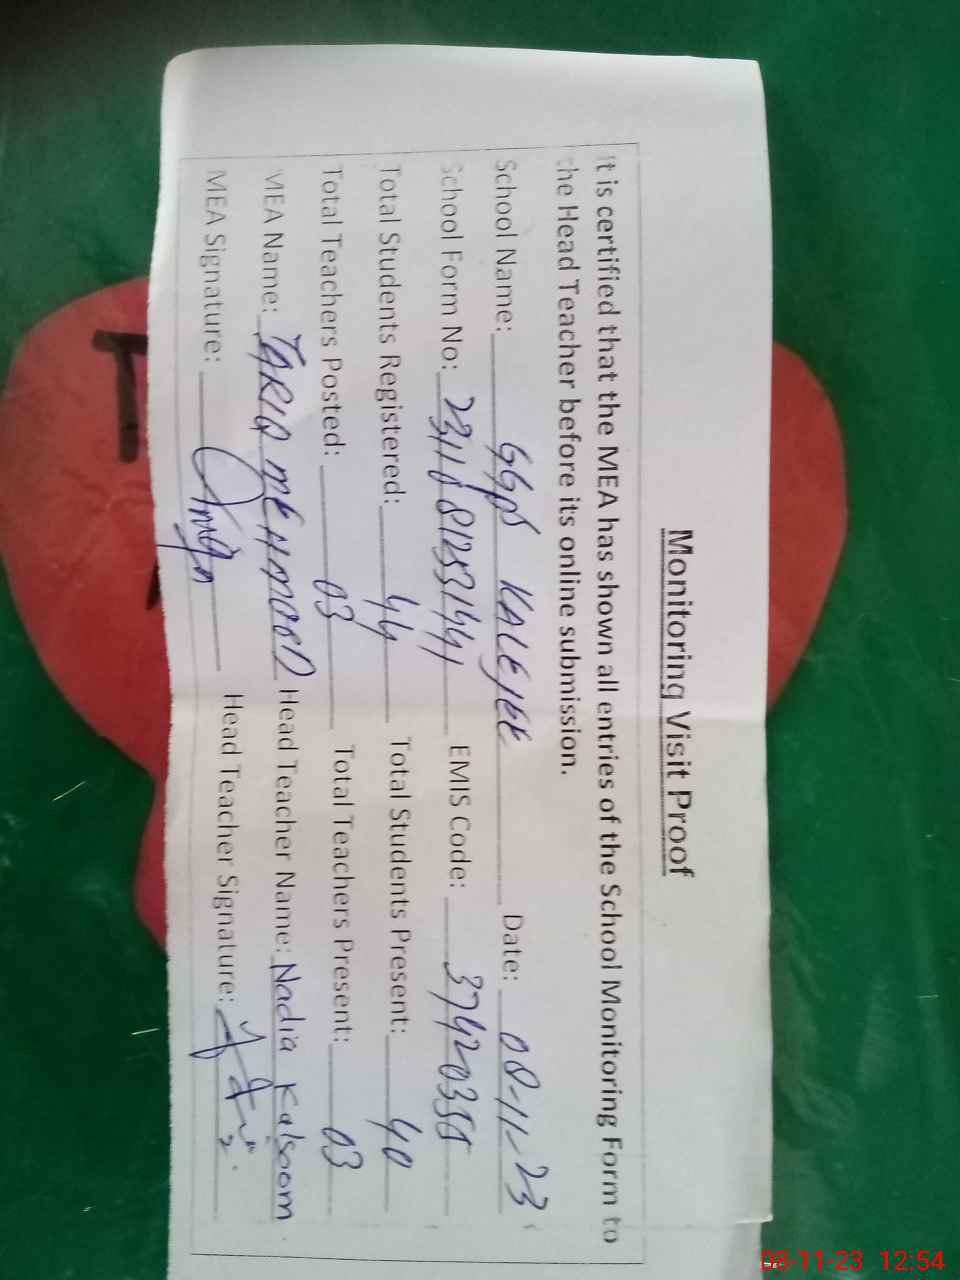 Monitoring Visit Proof
It is certified that the MEA has shown all entries of the School Monitoring Form to
the Head Teacher before its online submission.
School Name: GGPS KALEJEE Date: 08-11-23
School Form No: EMIS Code: 37420358
Total Students Registered: 44 Total Students Present: 40
Total Teachers Posted: 03 Total Teachers Present: 03
MEA Name: TARIQ MEHMOOD Head Teacher Name: Nadia Kalsoom
MEA Signature: Head Teacher Signature:
08-11-23 12:54